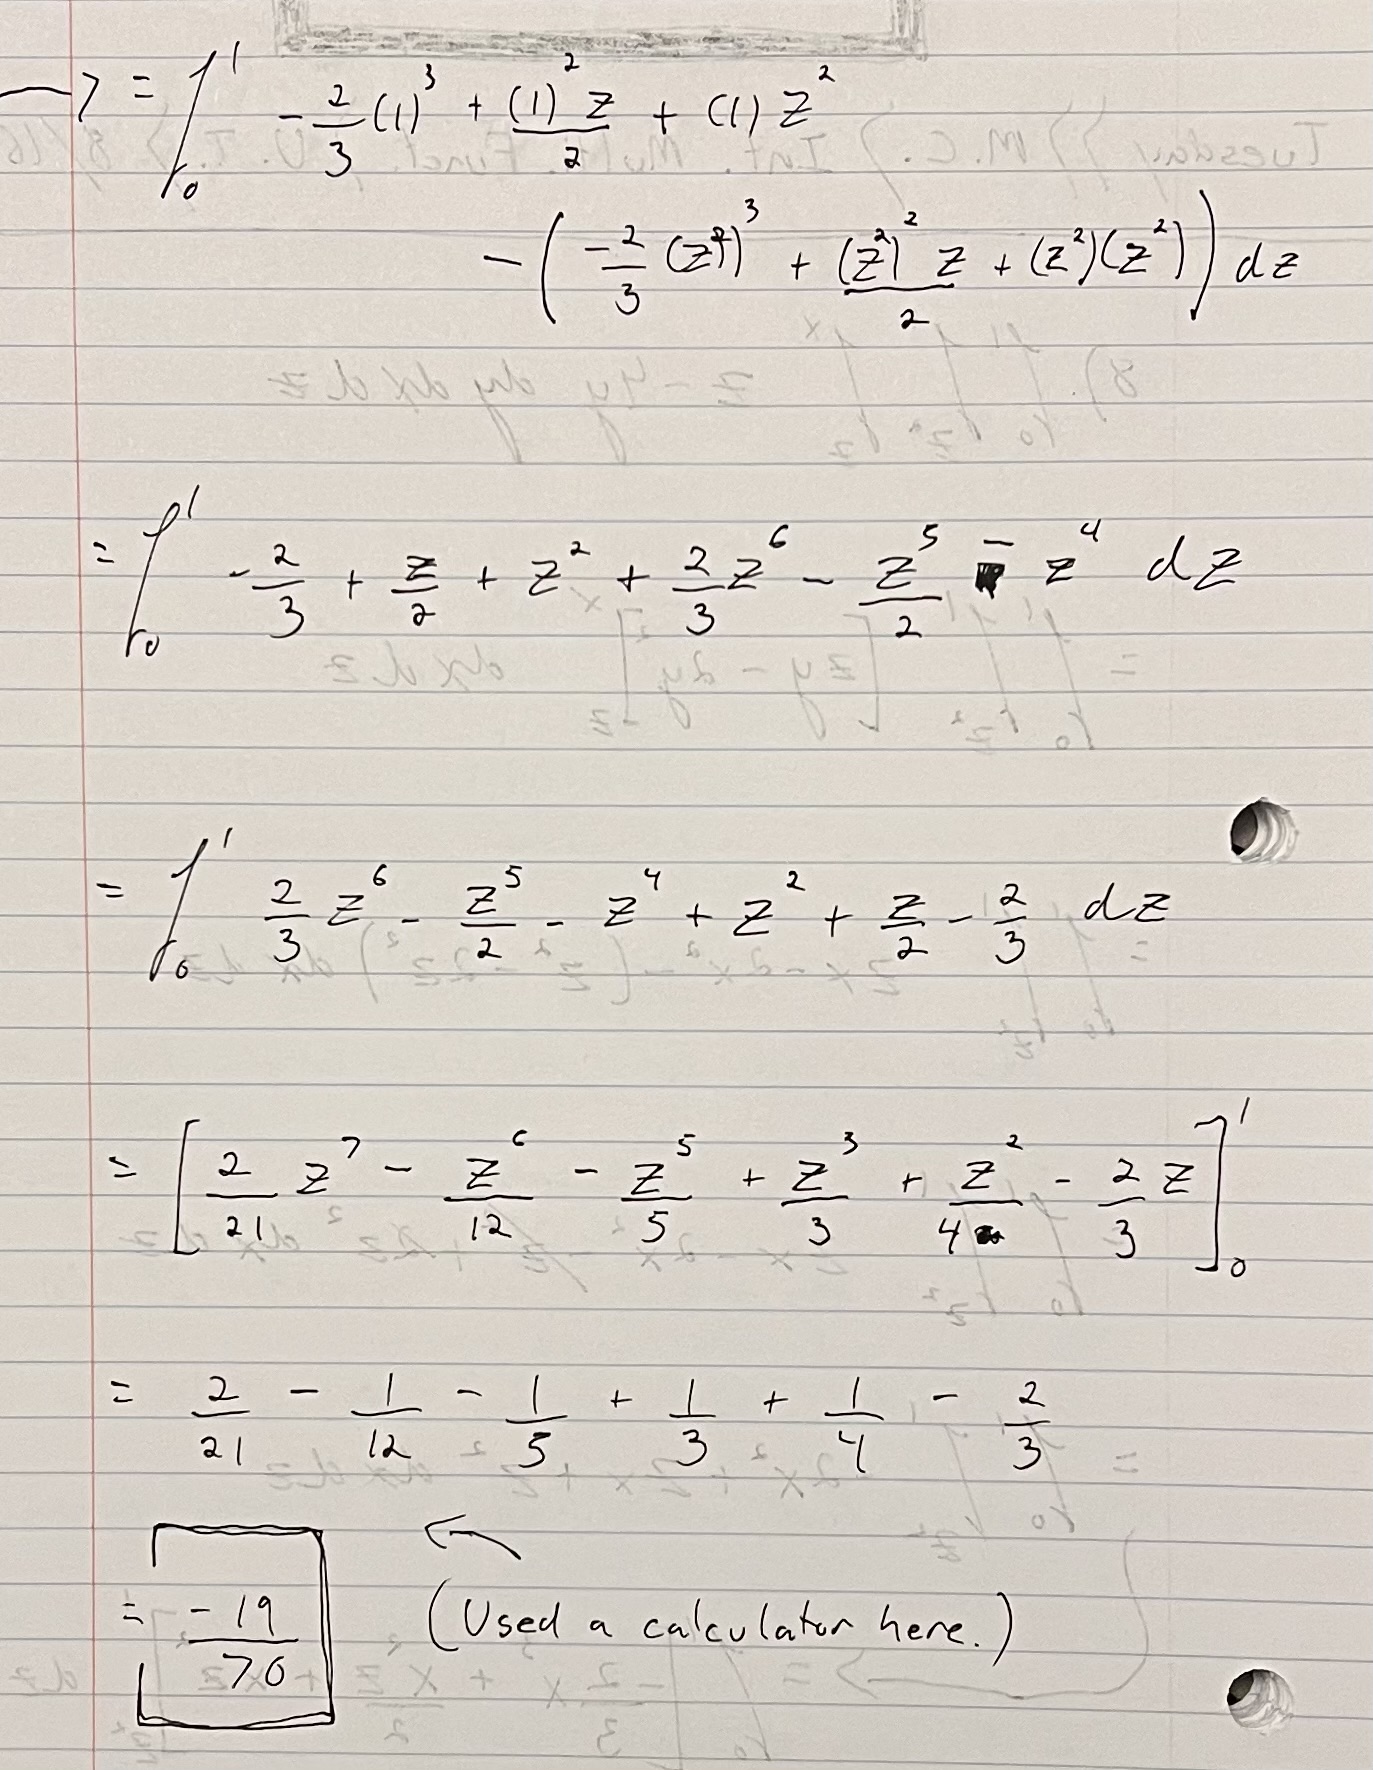 → = ∫₀¹ -2/3 (1)³ + (1)² z/2 + (1) z²
- ( -2/3 (z²)³ + (z²)² z/2 + (z²)(z²) ) dz
= ∫₀¹ -2/3 + z/2 + z² + 2/3 z⁶ - z⁵/2 - z⁴ dz
= ∫₀¹ 2/3 z⁶ - z⁵/2 - z⁴ + z² + z/2 - 2/3 dz
= [ 2/21 z⁷ - z⁶/12 - z⁵/5 + z³/3 + z²/4 - 2/3 z ]₀¹
= 2/21 - 1/12 - 1/5 + 1/3 + 1/4 - 2/3
= -19/70 ← (Used a calculator here.)